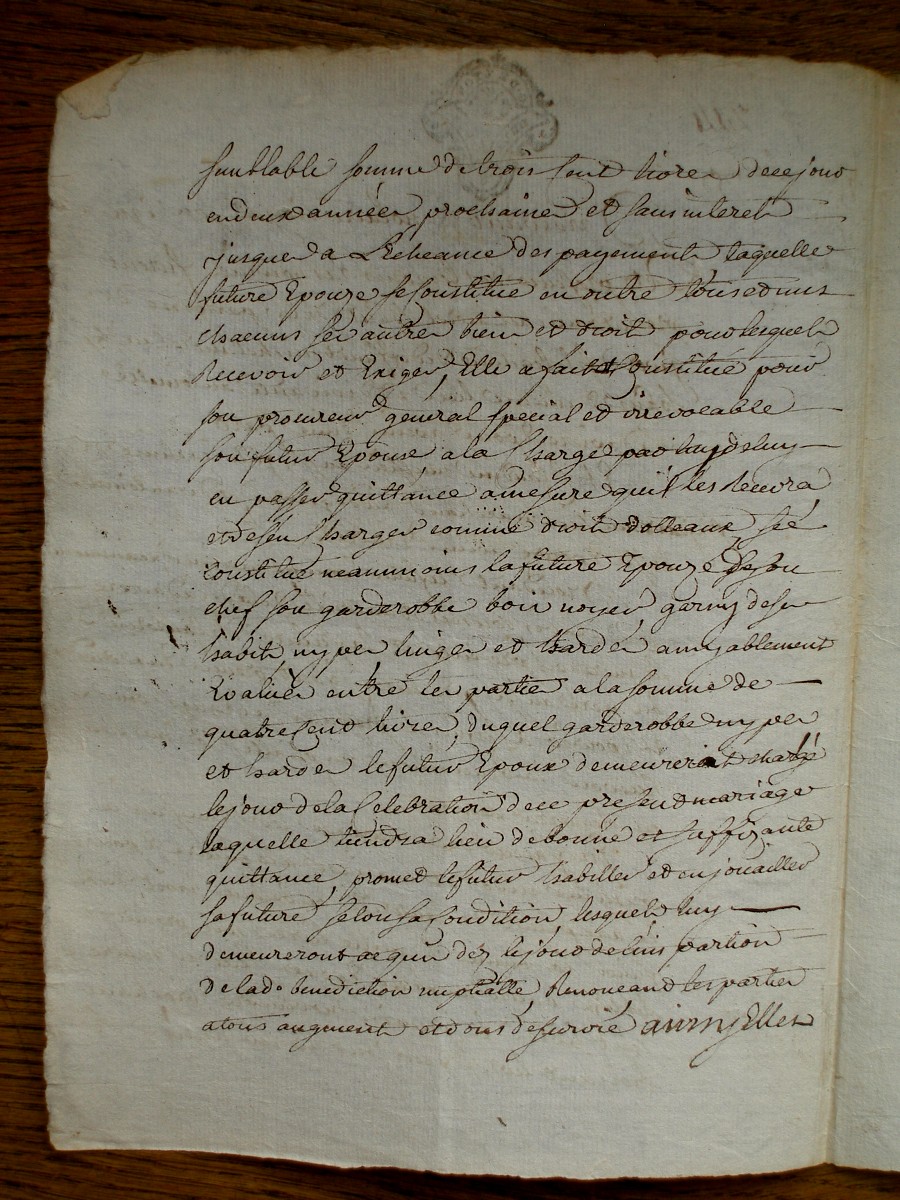 semblable somme de trois cent livres de ce jour
en deux années prochaines et sans interets
jusques a L'echeance des payements laquelle
future Epouze se Constitue en outre tous et uns
chacuns ses autres biens et droits pour lesquels
Recevoir et Exiger, Elle a fait et Constitue pour
son procureur general special et irrevocable
son futur Epoux a la Charge par luy
en passer quittance a mesure qu'il les Recevra
et de sen Charger comme droits dotteaux se
Constitue neanmoins la future Epouze de son
chef son garderobbe bois noyer garny de ses
habits nypes linges et hardes amyablement
Evalués entre les parties a la somme de
quatre Cent livres, duquel garderobbe nypes
et hardes le futur Epoux demeurerat chargé
le jour de la Celebration de ce present mariage
laquelle tiendra lieu de bonne et suffizante
quittance, promet le futur habiller et enjouailler
sa future, selon sa Condition lesquels luy
demeureront acquis dez le jour de l'inspartion
de lad. benediction nuptialle, Renonceant les parties
a tous augment et dons de survie ainsy Elles